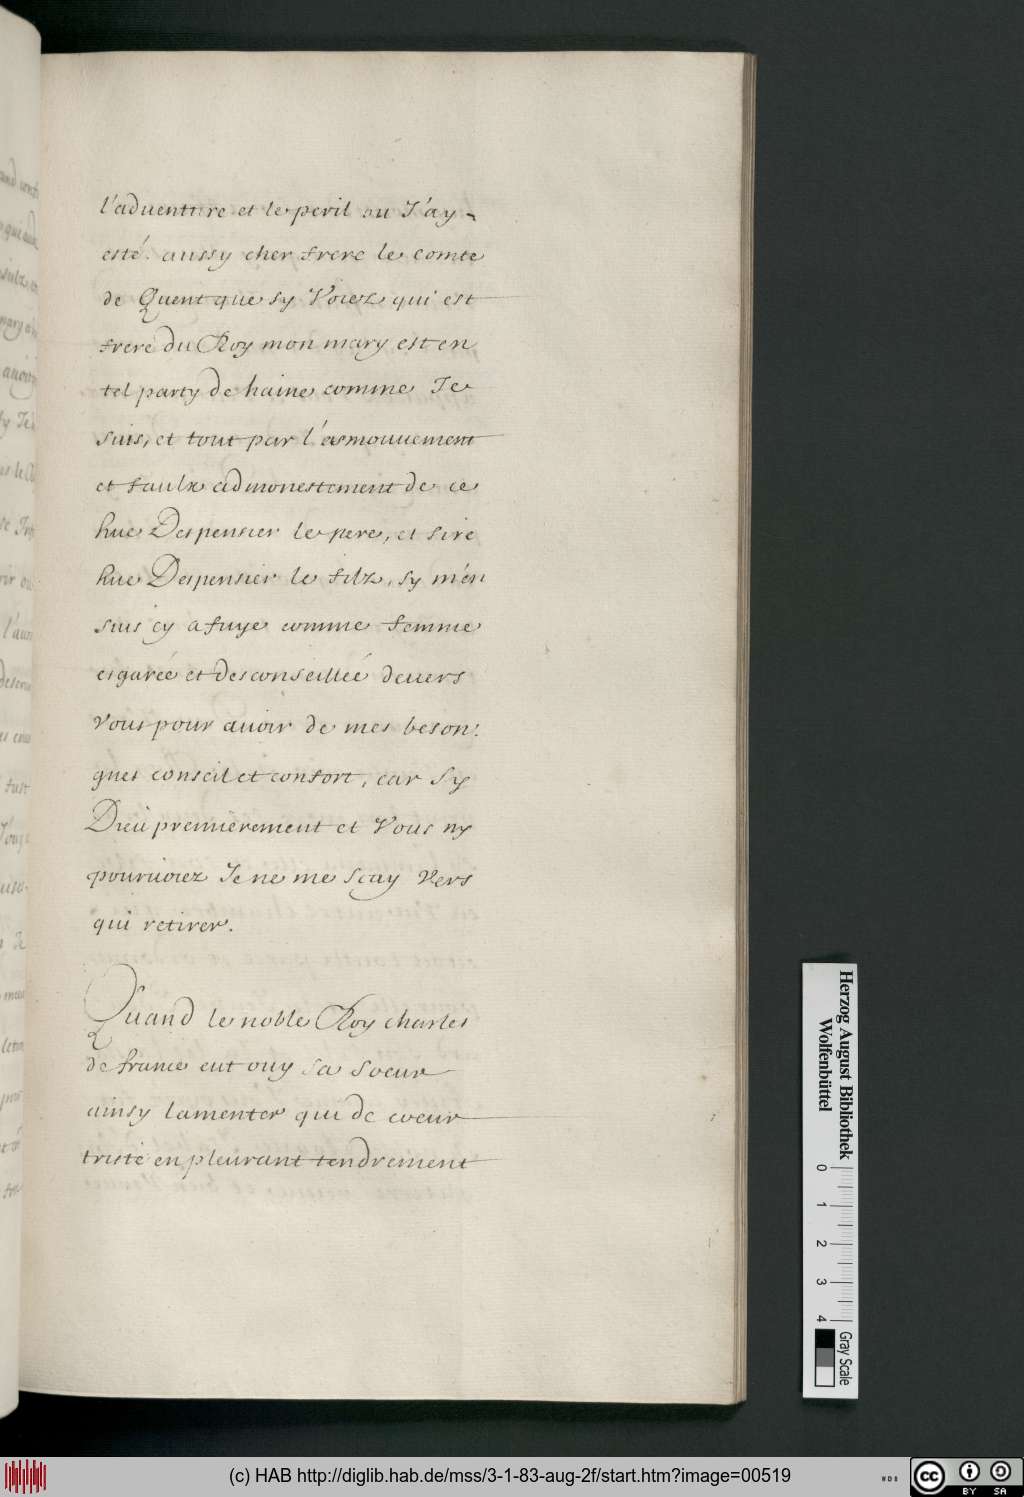 l'aduenture et le peril ou J'ay
esté. aussy cher frere le comte
de Quent que sy Voiez qui est
frere du Roy mon mary est en
tel party de haine comme Je
suis, et tout par l'esmouuement
et faulx admonestement de ce
hue Despensier le pere, et sire
hue Despensier le filz, sy m'en
suis cy afuye comme femme
esgarée et desconseillée deuers
Vous pour auoir de mes beson-
gnes conseil et confort, car sy
Dieu premierement et Vous ny
pouruoiez Je ne me sçay Vers
qui retirer.
Quand le noble Roy charles
de france eut ouy sa soeur
ainsy lamenter qui de coeur
triste en pleurant tendrement
Herzog August Bibliothek
Wolfenbüttel
0 1 2 3 4
Gray Scale
(c) HAB http://diglib.hab.de/mss/3-1-83-aug-2f/start.htm?image=00519
WDB
cc BY SA